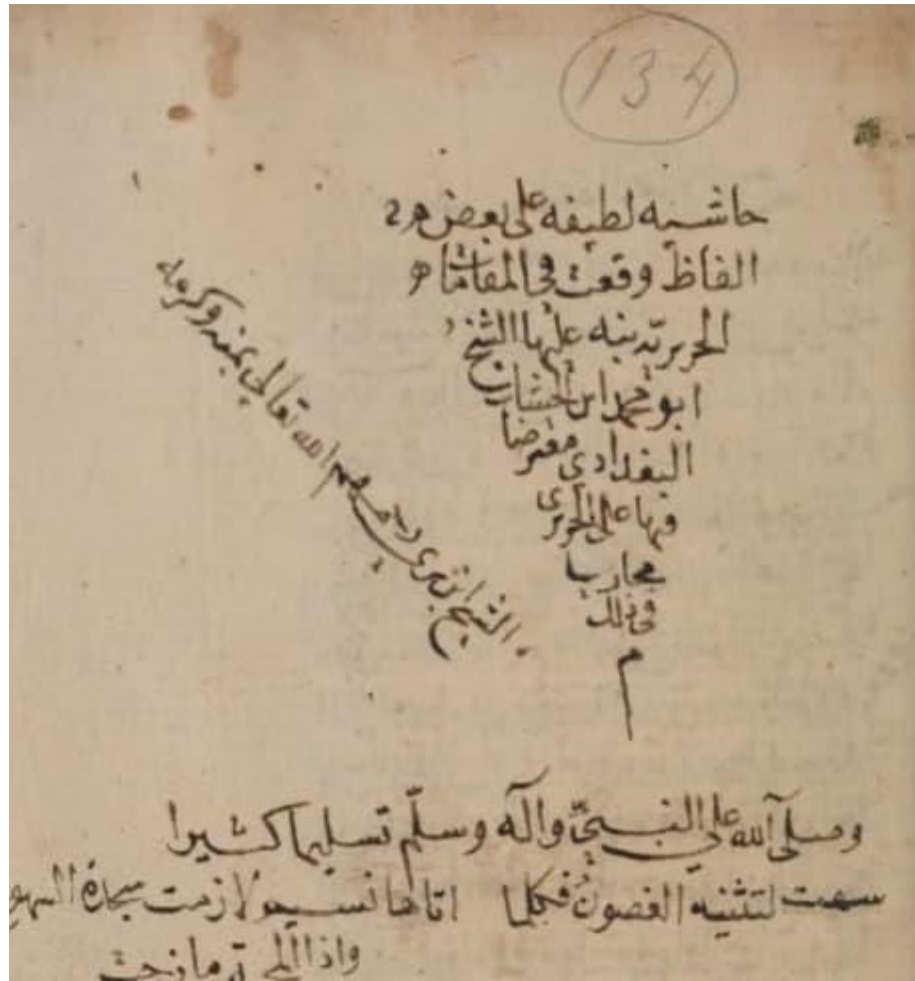 134
حاشيه لطيفه على بعض
الفاظ وقعت في المقامات
الحريريه نبه عليها الشيخ
ابو محمد ابن الخشاب
البغدادي معترضا
فيها على الحريري
يجاوب
في ذلك
م
الشيخ ابن بري رحمهم الله تعالى بمنه وكرمه
وصلى الله على النبي وآله وسلم تسليما كثيرا
لتثنيه الغصون فكلما اتاها نسيم لازمت سجدة السهو
واذا